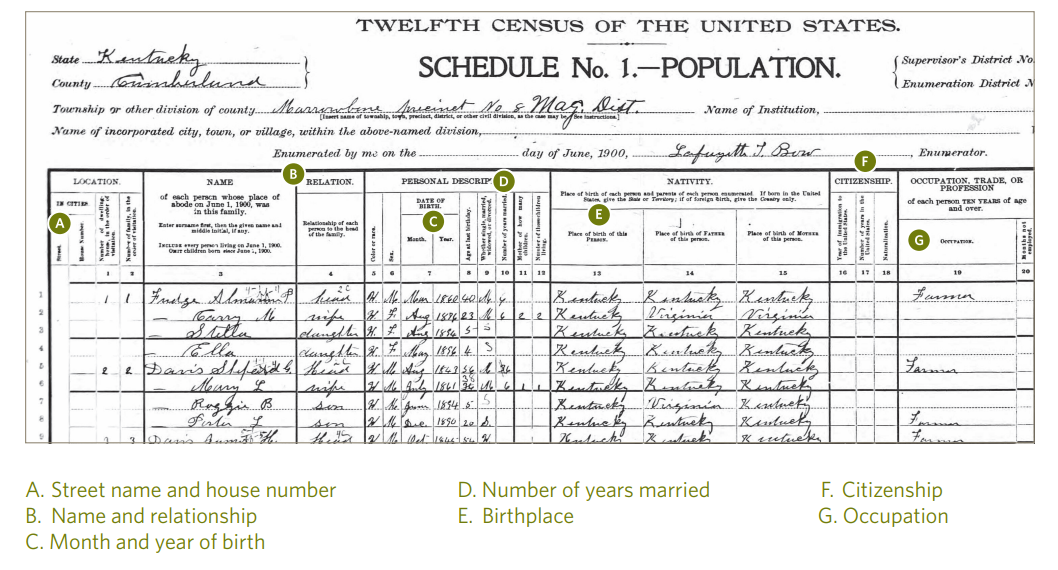 TWELFTH CENSUS OF THE UNITED STATES.
State Kentucky
County Cumberland
SCHEDULE No. 1.—POPULATION.
Supervisor's District No
Enumeration District N
Township or other division of county Marrowbone precinct No 8 Mag. Dist. Name of Institution,
[Insert name of township, town, precinct, district, or other civil division, as the case may be. See instructions.]
Name of incorporated city, town, or village, within the above-named division,
Enumerated by me on the day of June, 1900, Bow, Enumerator.
LOCATION. NAME RELATION. PERSONAL DESCRIP NATIVITY. CITIZENSHIP. OCCUPATION, TRADE, OR PROFESSION
IN CITIES.
Street.
House Number.
Number of dwelling-house, in the order of visitation.
Number of family, in the order of visitation.
of each person whose place of abode on June 1, 1900, was in this family.
Enter surname first, then the given name and middle initial, if any.
INCLUDE every person living on June 1, 1900.
OMIT children born since June 1, 1900.
Relationship of each person to the head of the family.
Color or race.
Sex.
DATE OF BIRTH.
Month. Year.
Age at last birthday.
Whether single, married, widowed, or divorced.
Number of years married.
Mother of how many children.
Number of these children living.
Place of birth of each person and parents of each person enumerated. If born in the United States, give the State or Territory; if of foreign birth, give the Country only.
Place of birth of this PERSON.
Place of birth of FATHER of this person.
Place of birth of MOTHER of this person.
Year of immigration to the United States.
Number of years in the United States.
Naturalization.
of each person TEN YEARS of age and over.
OCCUPATION.
Months not employed.
1 2 3 4 5 6 7 8 9 10 11 12 13 14 15 16 17 18 19 20
1 1 1 Fudge head W M Mar 1860 40 M Kentucky Kentucky Kentucky Farmer
2 — M wife W F Aug 1876 23 M 6 2 2 Kentucky Virginia Virginia
3 — Stella daughter W F 5 S Kentucky Kentucky Kentucky
4 — Ella daughter W F May 1896 4 S Kentucky Kentucky Kentucky
5 2 2 Davis G. head W M Aug 1843 56 M Kentucky Kentucky Kentucky Farmer
6 — Mary L wife W M July 1861 M 6 1 1 Kentucky Kentucky Kentucky
7 — B son W M 1894 5 S Kentucky Virginia Kentucky
8 — L son W M Dec. 20 S. Kentucky Kentucky Kentucky
9 3 Davis head W M Oct W Kentucky Kentucky Kentucky
A
B
C
D
E
F
G
A. Street name and house number
B. Name and relationship
C. Month and year of birth
D. Number of years married
E. Birthplace
F. Citizenship
G. Occupation